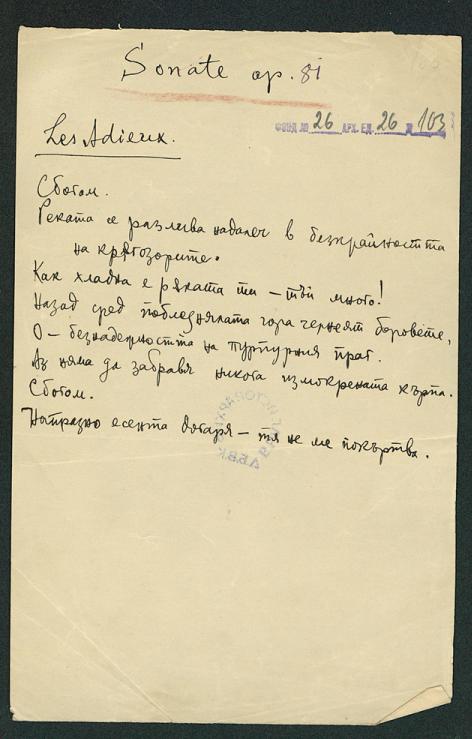 Sonate op. 81
ФОНД № 26 АРХ. ЕД. 26 Л 103
Les Adieux.
Сбогом.
Реката се разлива надалеч в безкрайността
на кръгозорите.
Как хладна е ръката ти – тъй много!
Назад сред побледнялата гора чернеят боровете,
О – безнадежността на пурпурния праг.
Аз няма да забравя никога измокрената кърпа.
Сбогом.
Напразно есента догаря – тя не ме покъртва.